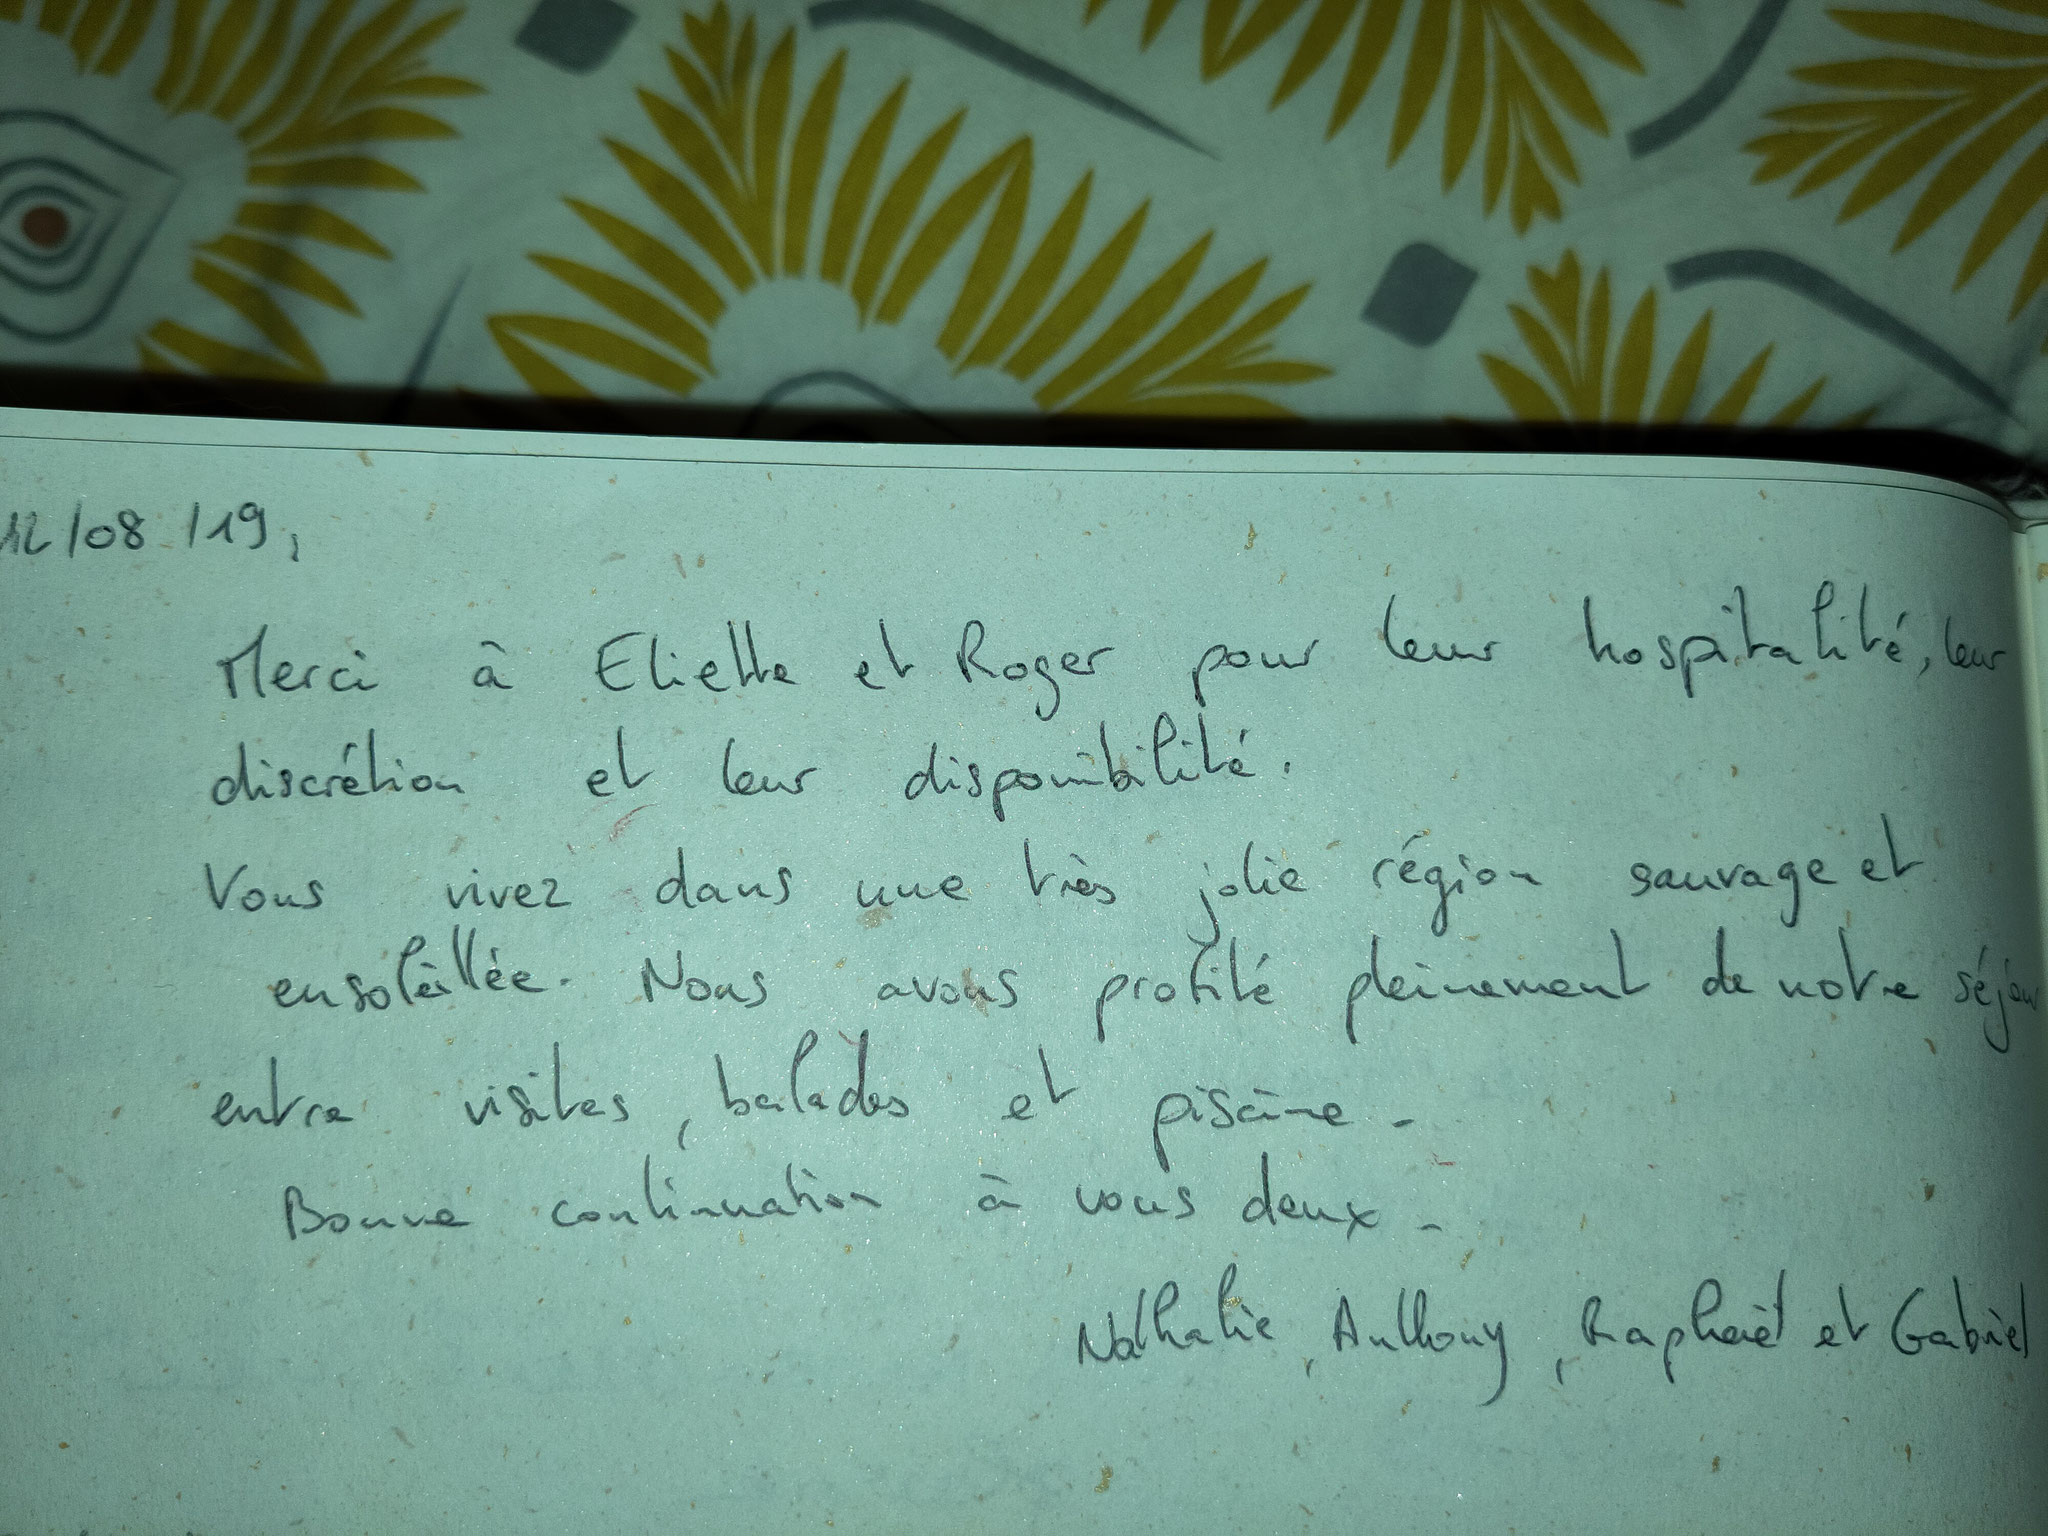 12/08/19,
Merci à Eliette et Roger pour leur hospitalité, leur
discrétion et leur disponibilité.
Vous vivez dans une très jolie région sauvage et
ensoleillée. Nous avons profité pleinement de notre séjour
entre visites, balades et piscine.
Bonne continuation à vous deux.
Nathalie, Anthony, Raphaël et Gabriel